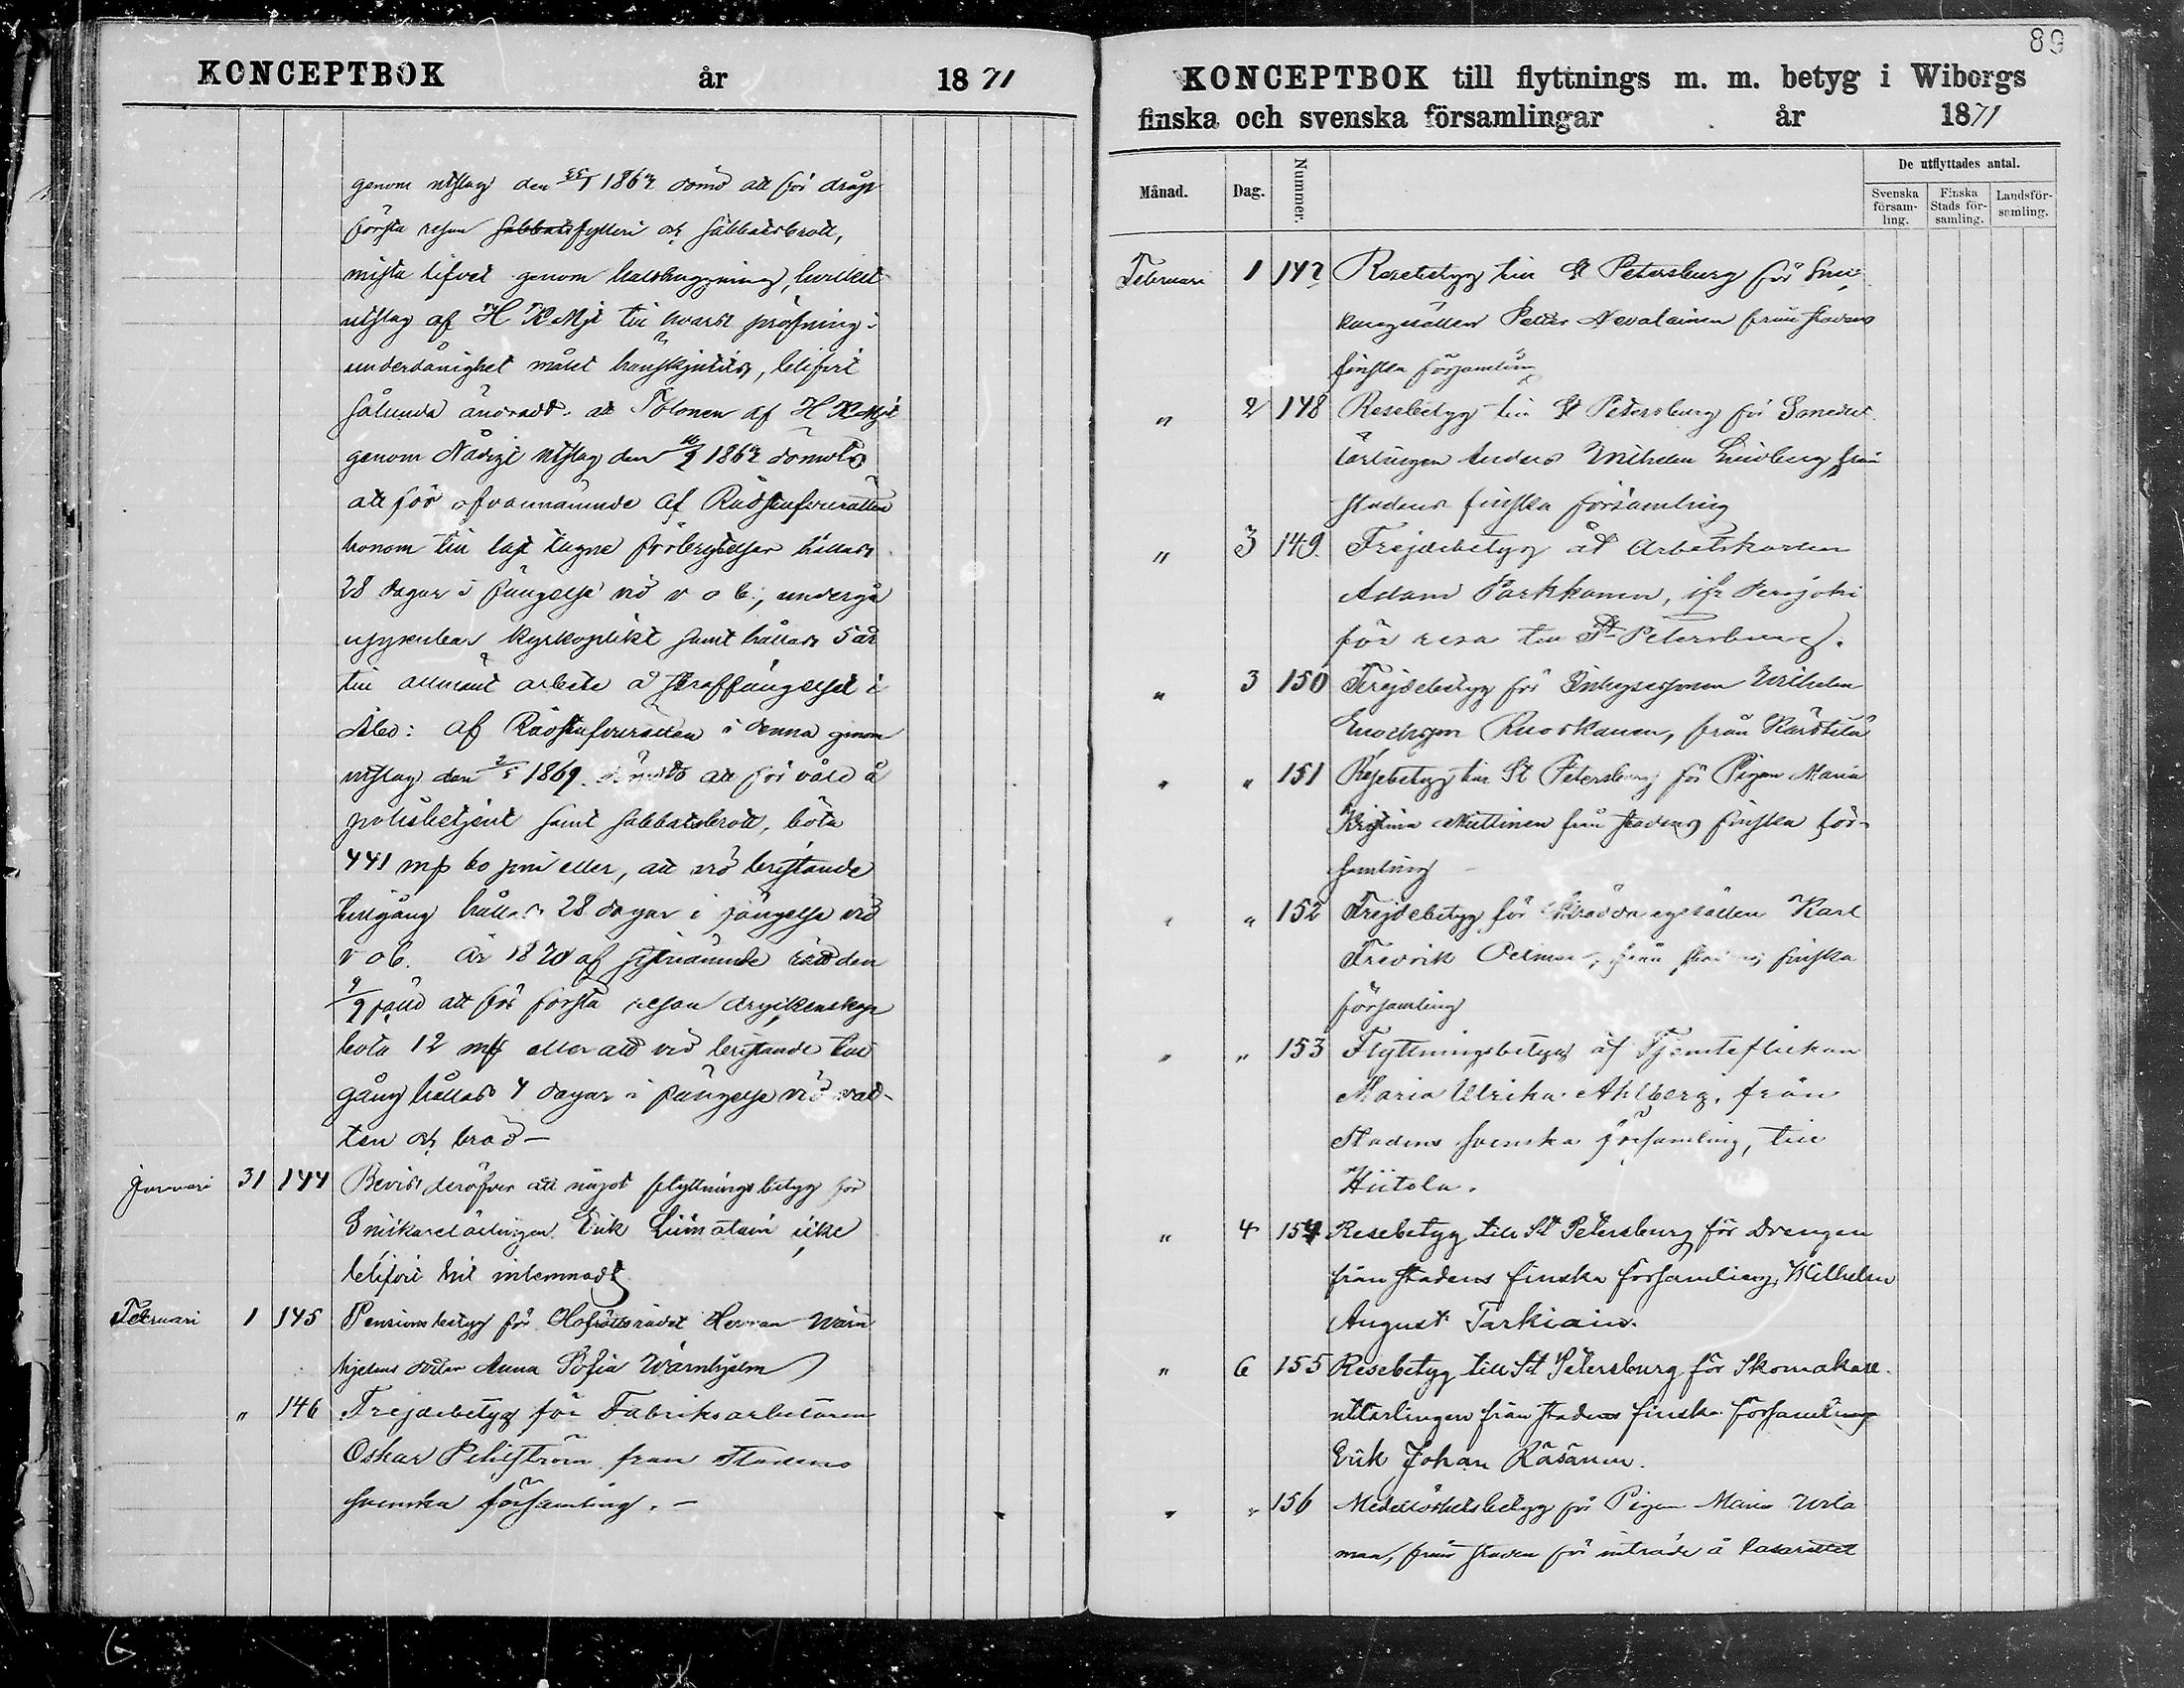 KONCEPTBOK år 1871
genom utslag den 25/1 1867 dömd att för dråp
första resan sabbats fylleri och sabbatsbrott,
mista lifvet genom halshuggning, hvilket
utslag af H K Mjt till hvars pröfning i
underdånighet målet hänskjutits, blifvit
sålunda ändradt: att Tolonen af H K Mjt
genom Nådigt utslag den 1867 dömts
att för ofvannämnde af Rådstufvurätten
honom till last lagne förbrytelser hållas
28 dagar i fängelse vid v o b., undergå
uppenbar kyrkoplikt samt hållas 5 år
till allmänt arbete å straffängelset i
Åbo: af Rådstufvurätten i denna genom
utslag den 2/5 1869. dömts att för våld å
polisbetjent samt sabbatsbrott, böta
441 mk 60 pni eller, att vid bristande
tillgång hållas 28 dagar i fängelse vid
v o b. År 1870 af sistnämnde rätt den
9/9 att för första resan dryckenskap
böta 12 mk eller att vid bristande till
gång hållas 4 dagar i fängelse vid vat-
ten och bröd —
Januari 31 144 Bevis deröfver att något flyttningsbetyg för
Snickarelärlingen Erik Liimatain icke
blifvit hit inlemnadt
Februari 1 145 Pensionsbetyg för Hofrättsrådet Herman Wärn
hjelms dotter Anna Sofia Wärnhjelm
" 146 Frejdebetyg för Fabriksarbetaren
Oskar Pehrström från Stadens
svenska församling. —
89
KONCEPTBOK till flyttnings m. m. betyg i Wiborgs
finska och svenska församlingar år 1871
Månad. Dag. Nummer. De utflyttades antal.
Svenska försam-ling. Finska Stads för-samling. Landsför-samling.
Februari 1 147 Resebetyg till St Petersburg för Snic
karegesällen Petter Nevalainen från stadens
finska församling
" 2 148 Resebetyg till St Petersburg för Smedst
lärlingen Anders Wilhelm Lindberg från
stadens finska församling
" 3 149. Frejdebetyg åt Arbetskarlen
Adam Parkkanen, ifr Perojoki
för resa till St Petersburg.
" 3 150 Frejdebetyg för Inhysessonen Wilhelm
Enochsson Ruoskanen, från Kärstilä
" " 151 Resebetyg till St Petersburg för Pigan Maria
Kristina Muttinen från stadens finska för-
samling
" " 152 Frejdebetyg för Skräddaregesällen Karl
Fredrik från stadens finska
församling
" " 153 Flyttningsbetyg åt Tjensteflickan
Maria Ulrika Ahlberg, från
Stadens svenska församling, till
Hiitola.
" 4 154 Resebetyg till St Petersburg för Drengen
från stadens finska församling, Wilhelm
August Tarkiain.
" 6 155 Resebetyg till St Petersburg för Skomakare-
utlärlingen från stadens finska församling
Erik Johan Räsänen.
" " 156 Medellöshetsbetyg för Pigan Maria Wila
man, från staden för inträde å lasarettet